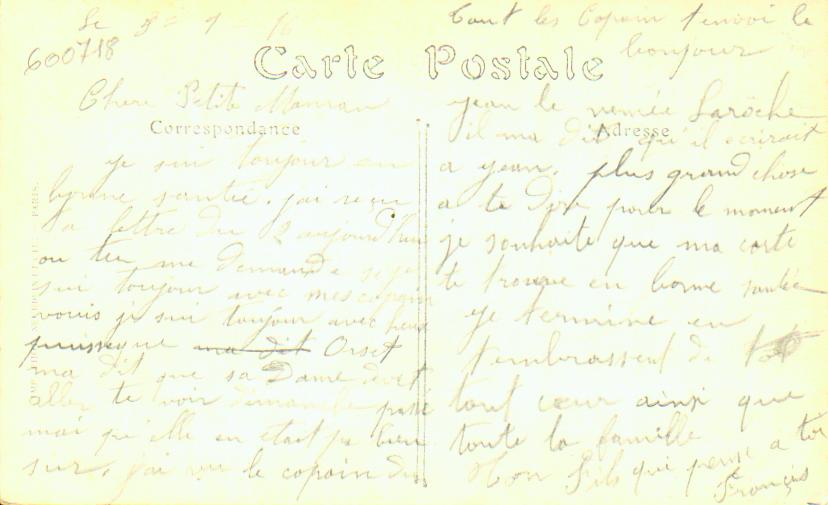 Le 3= 1 - 16
600718
Carte Postale
Correspondance
Chere Petite Maman
je suis toujour en
bonne santée. j'ai reçu
ta lettre du 2 aujourd'hui
ou tu me demande si je
suis toujour avec mes copain
vouis je suis toujour avec heux
puisseque ma dit Orset
ma dit que sa Dame devet
aller te voir dimanche passé
mai qu'elle en etait pa bien
sur, j'ai vu le copain du
Tout les Copain t'envoi le
bonjour
Adresse
jean le nomée Laroche
il ma dit qu'il ecrirait
a jean. plus grand chose
a te dire pour le moment
je souhaite que ma carte
te trouve en bonne santée
je termine en
t'embrassent de
tout cœur ainsi que
toute la famille
Ton fils qui pense a toi
François